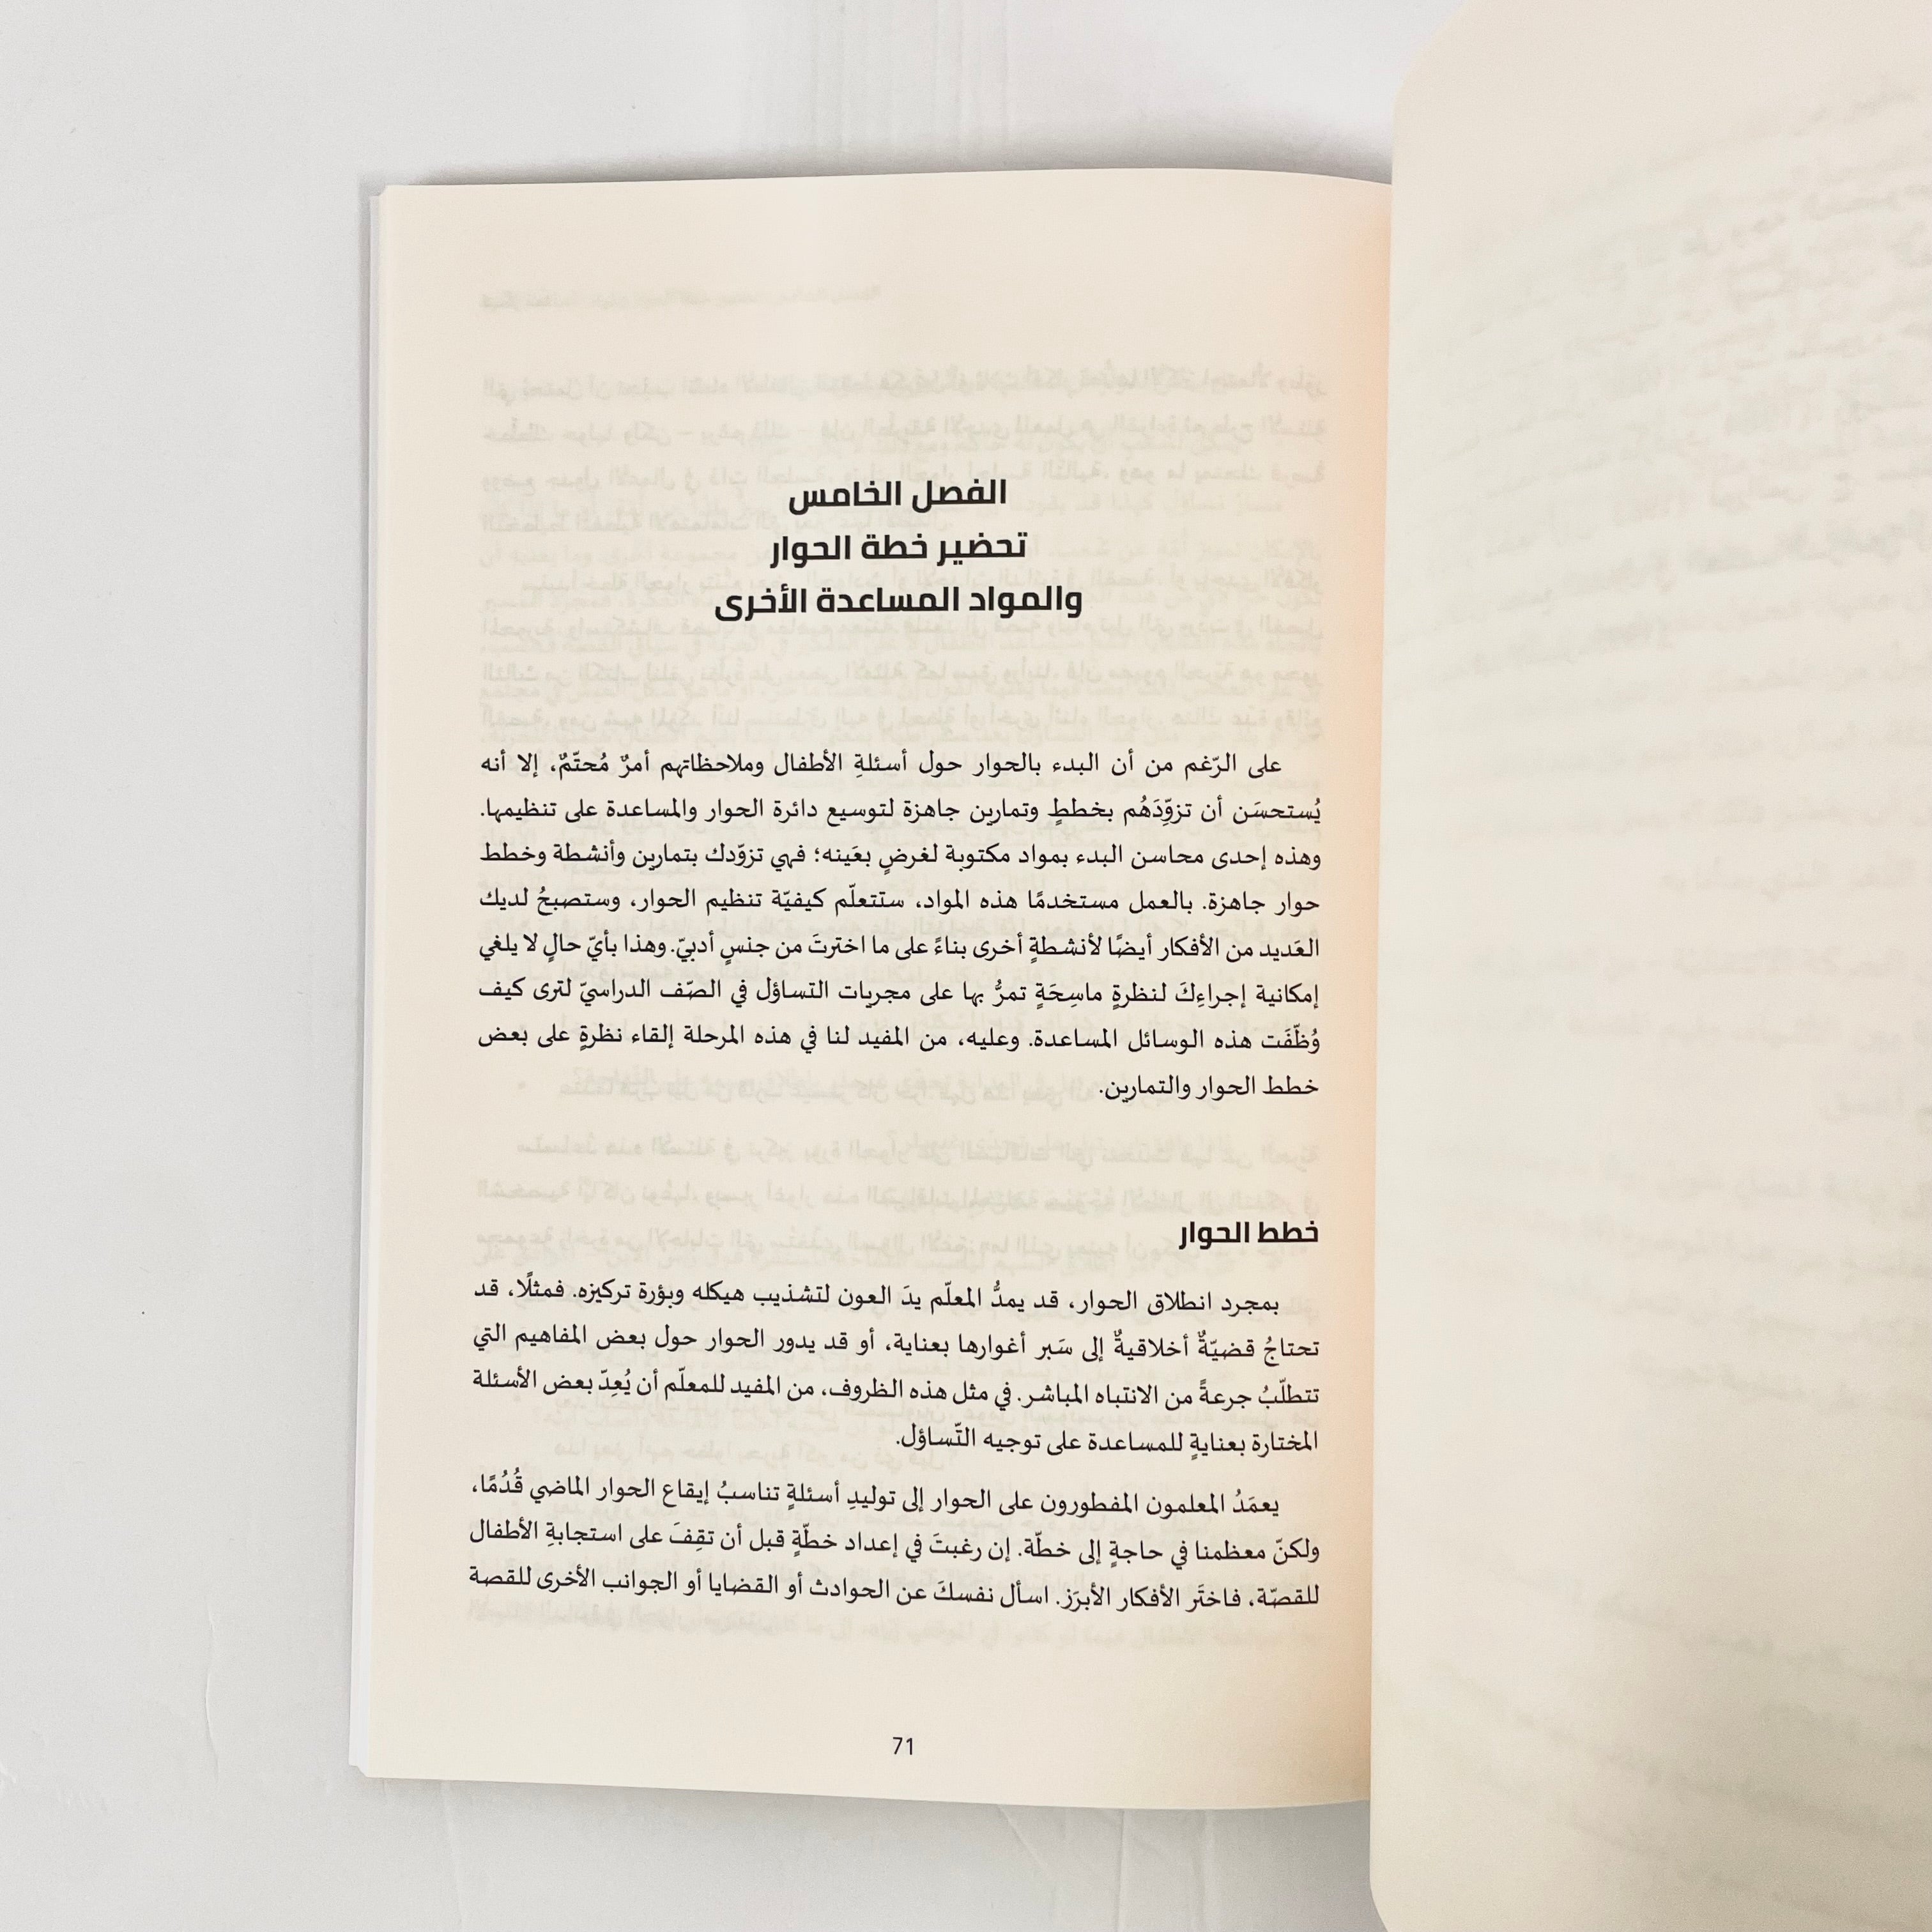 الفصل الخامس
تحضير خطة الحوار
والمواد المساعدة الأخرى
على الرّغم من أن البدء بالحوار حول أسئلةِ الأطفال وملاحظاتهم أمرٌ مُحتّمٌ، إلا أنه
يُستحسَن أن تزوِّدَهُم بخططٍ وتمارين جاهزة لتوسيع دائرة الحوار والمساعدة على تنظيمها.
وهذه إحدى محاسن البدء بمواد مكتوبة لغرضٍ بعَينه؛ فهي تزوّدك بتمارين وأنشطة وخطط
حوار جاهزة. بالعمل مستخدمًا هذه المواد، ستتعلّم كيفيّة تنظيم الحوار، وستصبحُ لديك
العَديد من الأفكار أيضًا لأنشطةٍ أخرى بناءً على ما اخترتَ من جنسٍ أدبيّ. وهذا بأيّ حالٍ لا يلغي
إمكانية إجراءِكَ لنظرةٍ ماسِحَةٍ تمرُّ بها على مجريات التساؤل في الصّف الدراسيّ لترى كيف
وُظّفَت هذه الوسائل المساعدة. وعليه، من المفيد لنا في هذه المرحلة إلقاء نظرةٍ على بعض
خطط الحوار والتمارين.
خطط الحوار
بمجرد انطلاق الحوار، قد يمدُّ المعلّم يدَ العون لتشذيب هيكله وبؤرة تركيزه. فمثلًا، قد
تحتاجُ قضيّةٌ أخلاقيةٌ إلى سَبر أغوارها بعناية، أو قد يدور الحوار حول بعض المفاهيم التي
تتطلّبُ جرعةً من الانتباه المباشر. في مثل هذه الظروف، من المفيد للمعلّم أن يُعِدّ بعض الأسئلة
المختارة بعنايةٍ للمساعدة على توجيه التّساؤل.
يعمَدُ المعلمون المفطورون على الحوار إلى توليدِ أسئلةٍ تناسبُ إيقاع الحوار الماضي قُدُمًا،
ولكنّ معظمنا في حاجةٍ إلى خطّة. إن رغبتَ في إعداد خطّةٍ قبل أن تقِفَ على استجابةِ الأطفال
للقصّة، فاختَر الأفكار الأبرَز. اسأل نفسكَ عن الحوادث أو القضايا أو الجوانب الأخرى للقصة
71